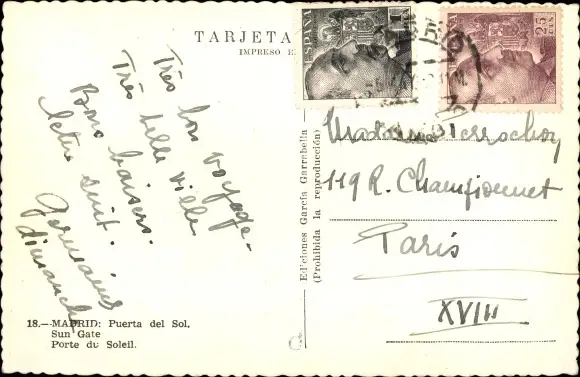 TARJETA
IMPRESO E
ESPAÑA
1
ESPAÑA
25
CTS
Très bon voyage –
Très belle ville
Bons baisers.
lettre suit.
Germaine
dimanche
Ediciones García Garrabella
(Prohibida la reproducción)
Madame
119 R. Championnet
Paris
XVIII
18.–MADRID: Puerta del Sol.
Sun Gate
Porte du Soleil.